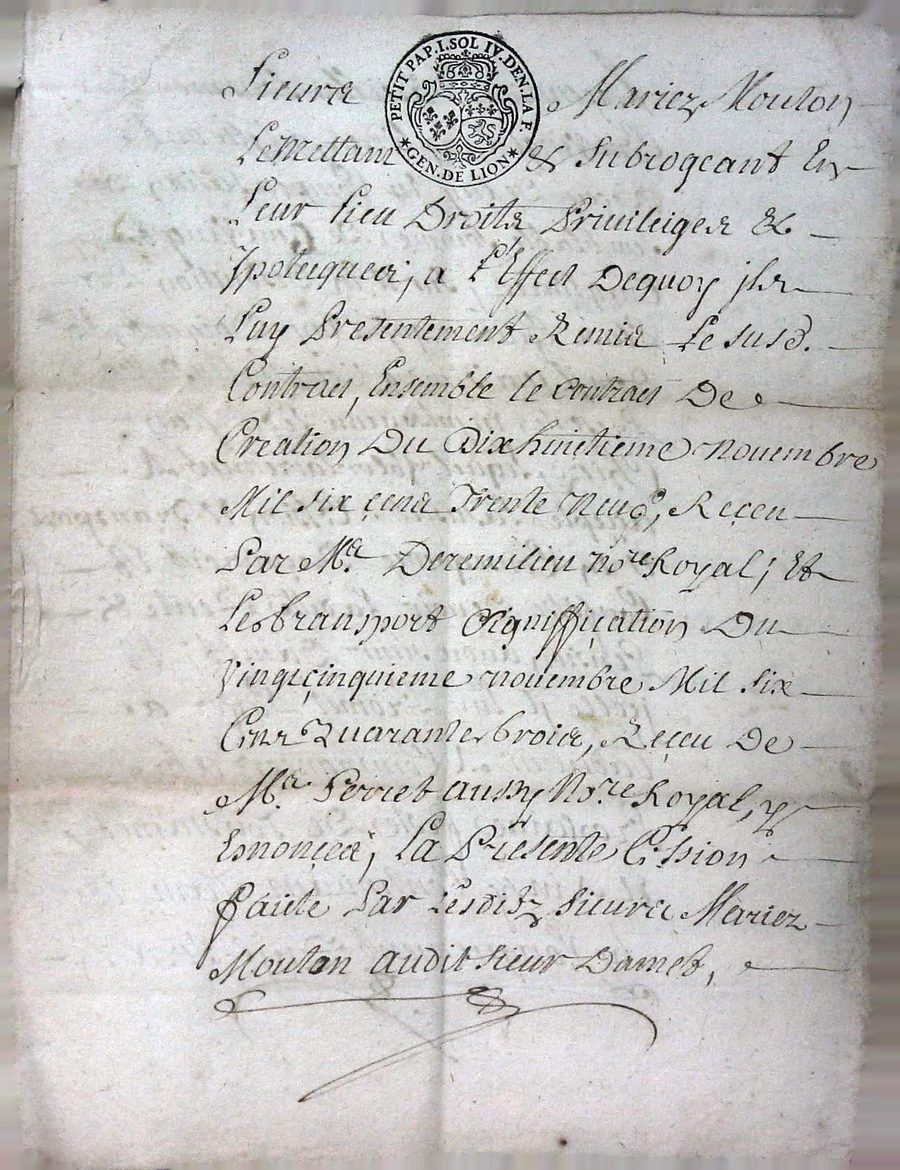 PETIT PAP. I. SOL IV. DEN. LA F.
GEN. DE LION
Sieurs Mariez Mouton
Le Mettant & Subrogeant En
Leur lieu Droits Privileiges &
Ypotecques, a L'Effect Dequoy ils
Luy Presentement Remis Le susd.
Contract, Ensemble le Contract De
Creation Du Dixhuictieme Novembre
Mil six cens Trente Neuf, Reçeu
Par Me. Deremilieu Nore. Royal; Et
Le transport Signiffication Du
Vingtcinquieme novembre Mil six
Cens Quarante trois, Reçeu De
Me. Perret aussy Nore. Royal, y
Enonçés, La Presente Cession
faicte Par Lesditz Sieurs Mariez
Mouton audit sieur Damet,